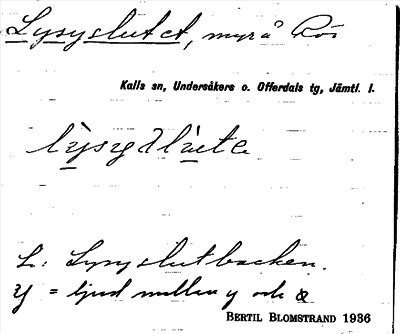 Lysyslutet, myr å Rös
Kalls sn, Undersåkers o. Offerdals tg, Jämtl. l.
L: Lysyslutbacken.
y = ljud mellan y och ö
BERTIL BLOMSTRAND 1936